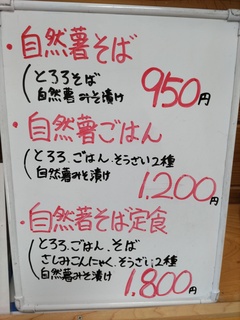 ・自然薯そば
(とろろそば
自然薯みそ漬け
950円
・自然薯ごはん
(とろろ、ごはん、そうざい2種
自然薯みそ漬け
1.200円
・自然薯そば定食
(とろろ、ごはん、そば
さしみこんにゃく、そうざい2種
自然薯みそ漬け
1.800円